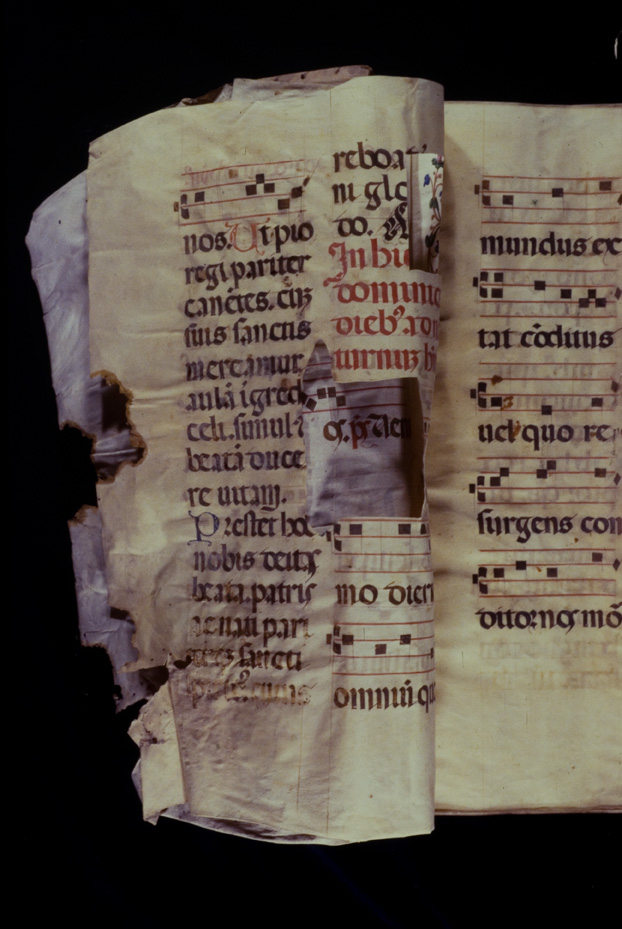 nos. Ut pio
regi pariter
canētes. cū
suis sanctis
mereamur
aulā īgredi
celi. simul ⁊
beatā duce
re uitam.
Prestet hoc
nobis deitas
beata. patris
ac nati pari
sancti
reboat
ni glo
do.
In hie
dominic
dieb'
mo dieru
omniū q
mundus ex
tat cōditus
uel quo re
surgens con
ditor nos mō